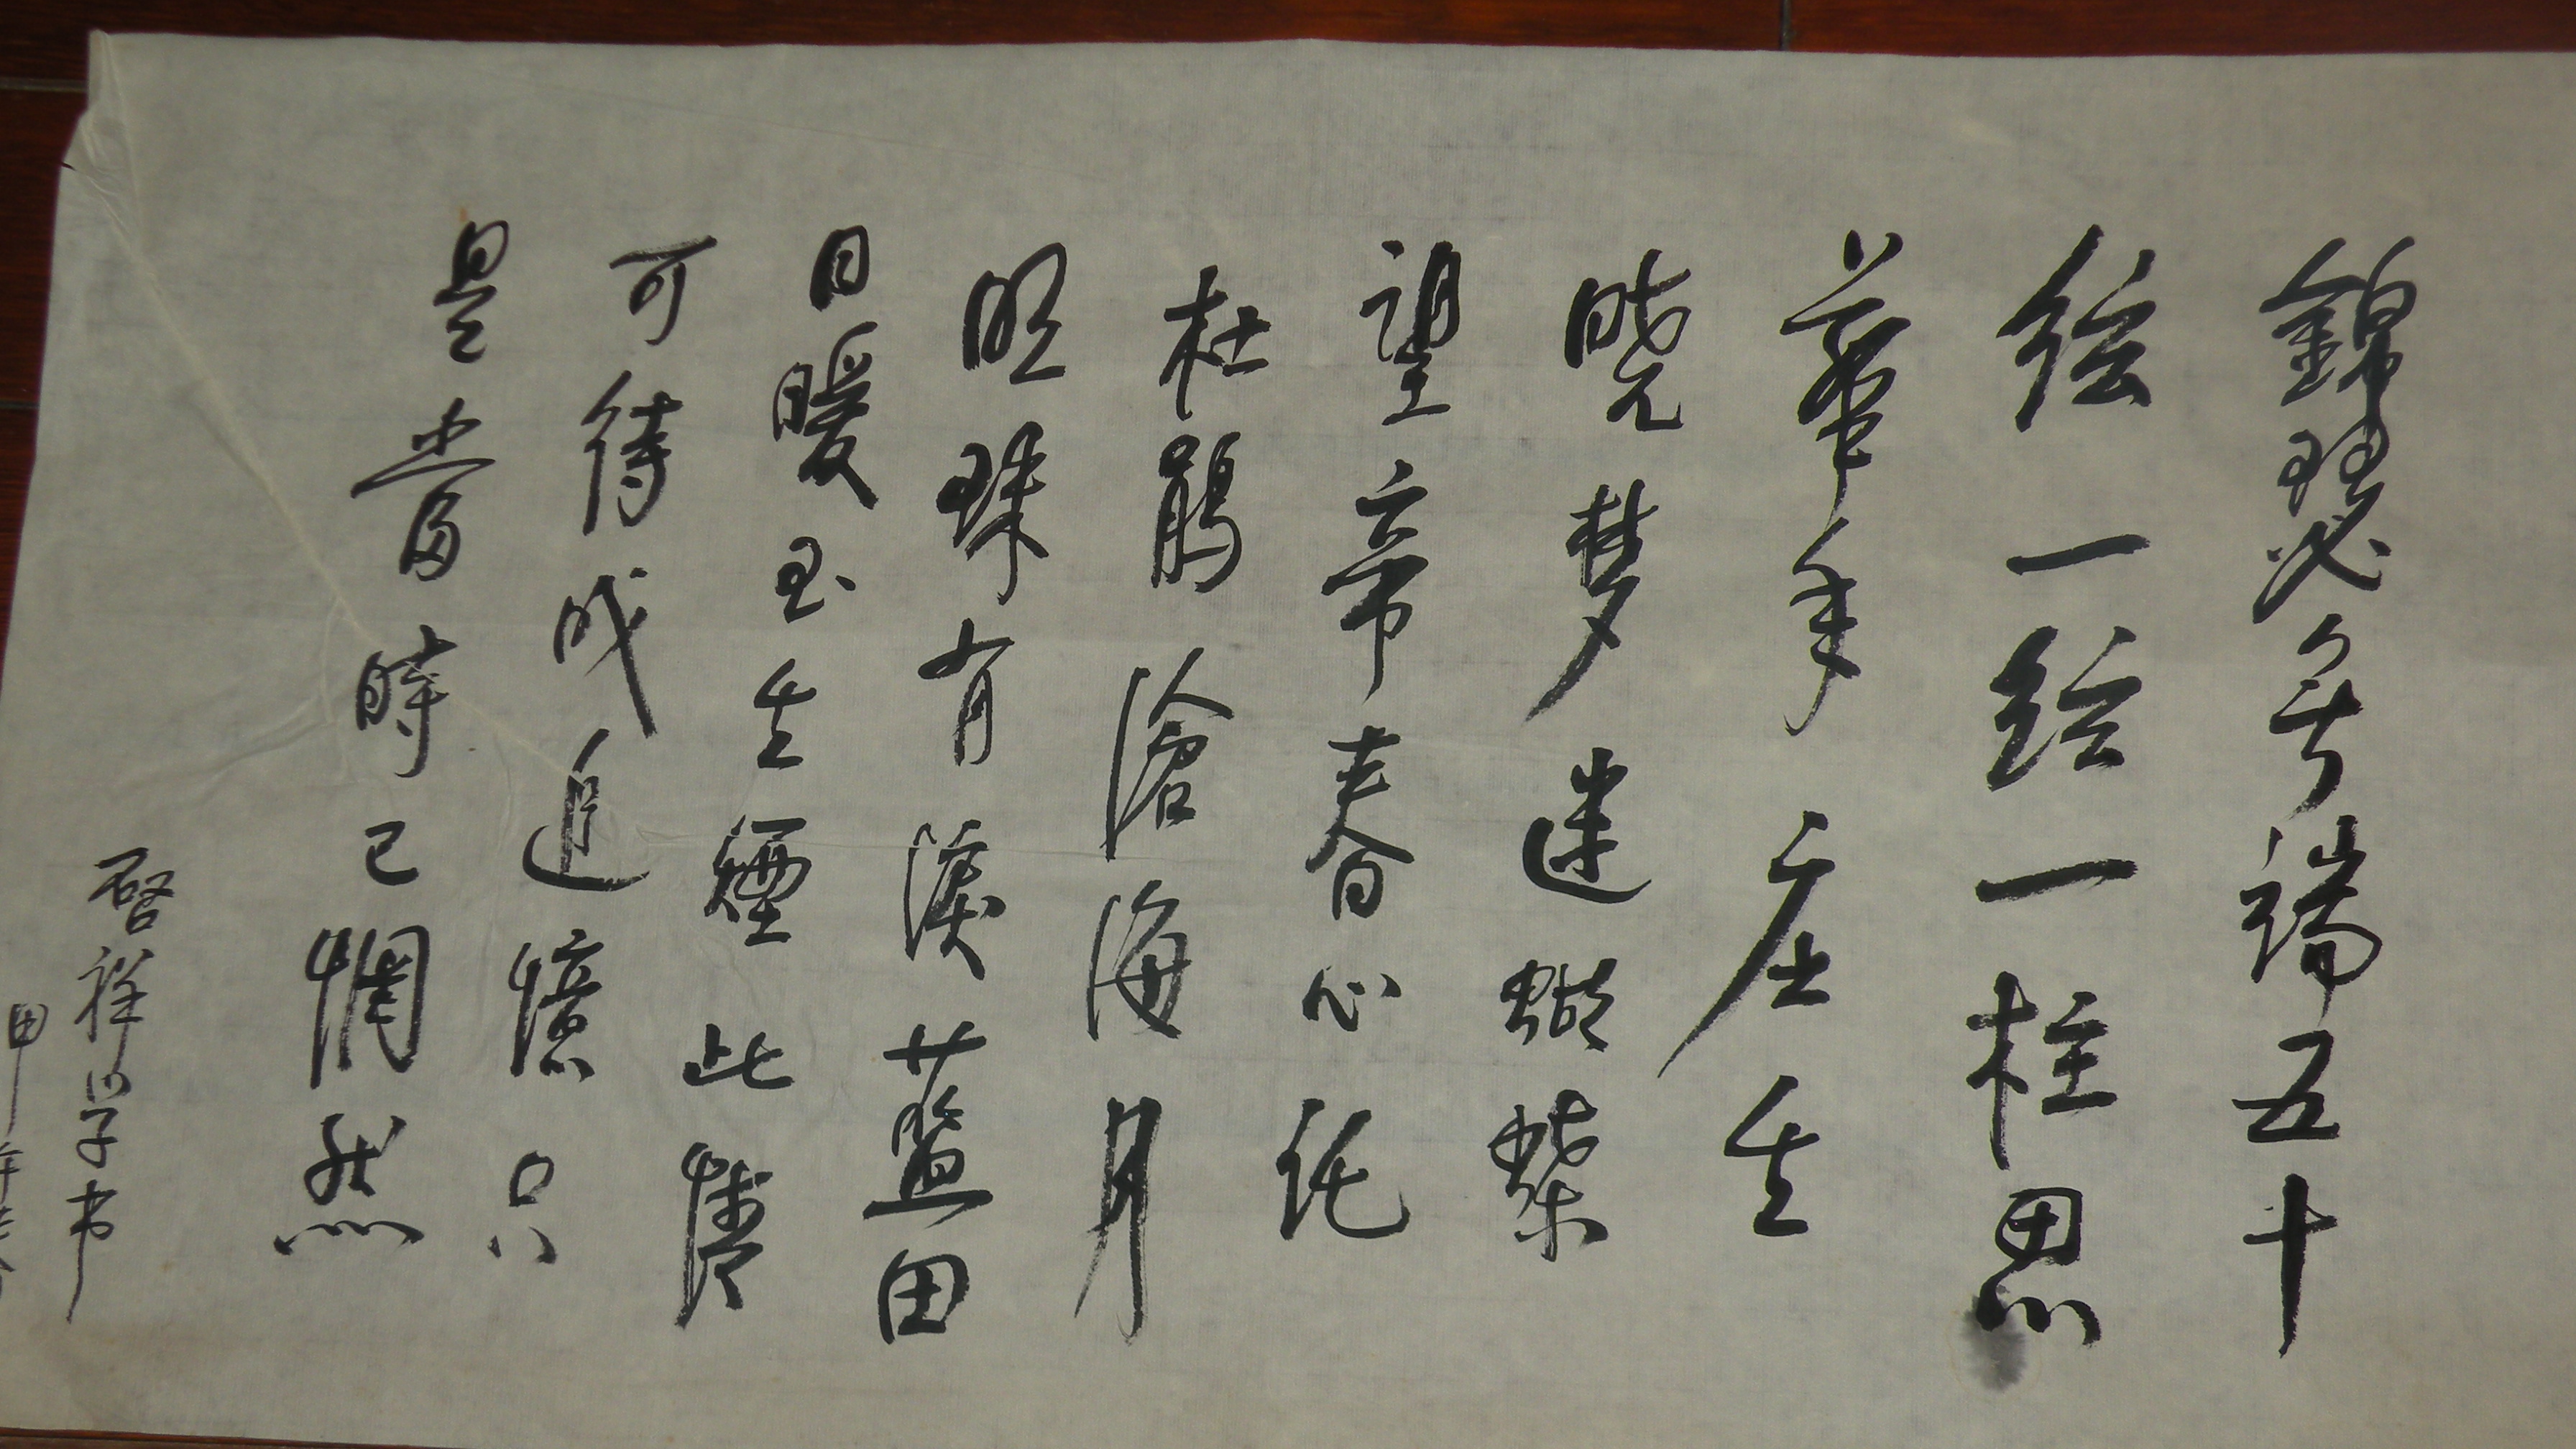 錦瑟無端五十
絃一絃一柱思
華年庄生
曉梦迷蝴蝶
望帝春心託
杜鵑滄海月
明珠有淚藍田
日暖玉生煙此情
可待成追憶只
是當時已惘然
啓祥学书
甲午